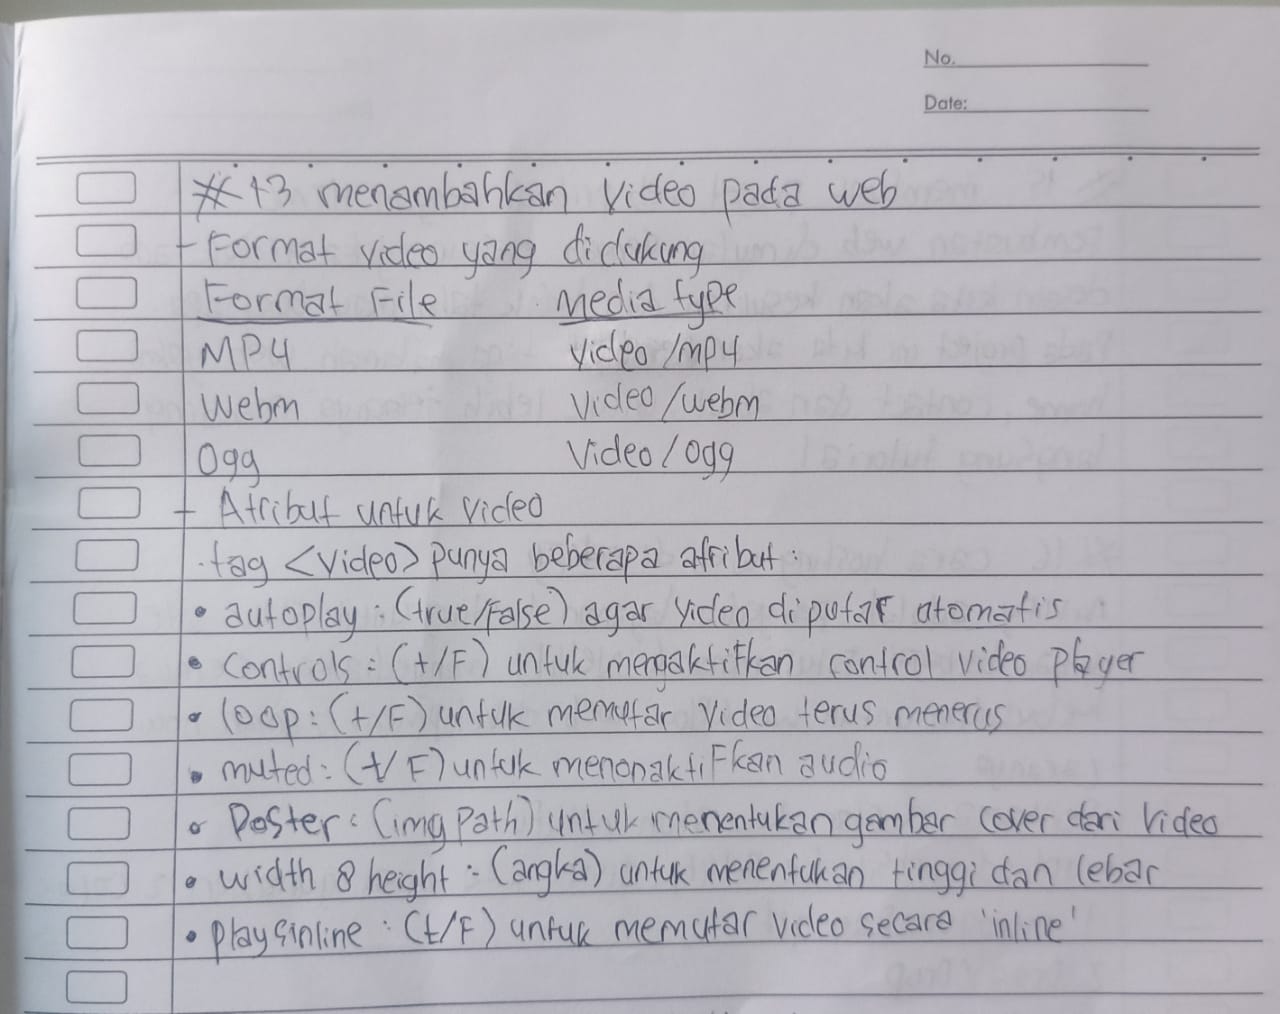 No.
Date:
# 13 menambahkan video pada web
- Format video yang didukung
Format File Media type
MP4 video/mp4
Webm Video/webm
Ogg Video/Ogg
- Atribut untuk video
. tag <video> punya beberapa atribut :
• autoplay : (true/false) agar video diputar otomatis
• Controls : (t/F) untuk mengaktifkan control video player
• loop : (t/F) untuk memutar video terus menerus
• muted : (t/F) untuk menonaktifkan audio
• Poster : (img path) untuk menentukan gambar cover dari video
• width & height : (angka) untuk menentukan tinggi dan lebar
• playsinline : (t/F) untuk memutar video secara 'inline'